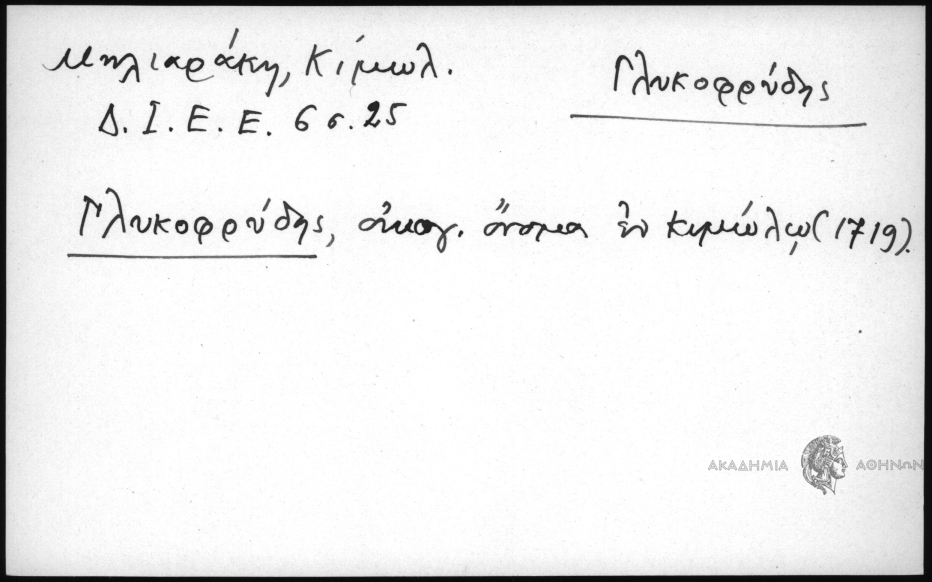 Μηλιαράκη, Κίμωλ.
Δ. Ι. Ε. Ε. 6 σ. 25
Γλυκοφρύδης
Γλυκοφρύδης, οἰκογ. ὄνομα ἐν Κιμώλῳ (1719).
ΑΚΑΔΗΜΙΑ ΑΘΗΝΩΝ